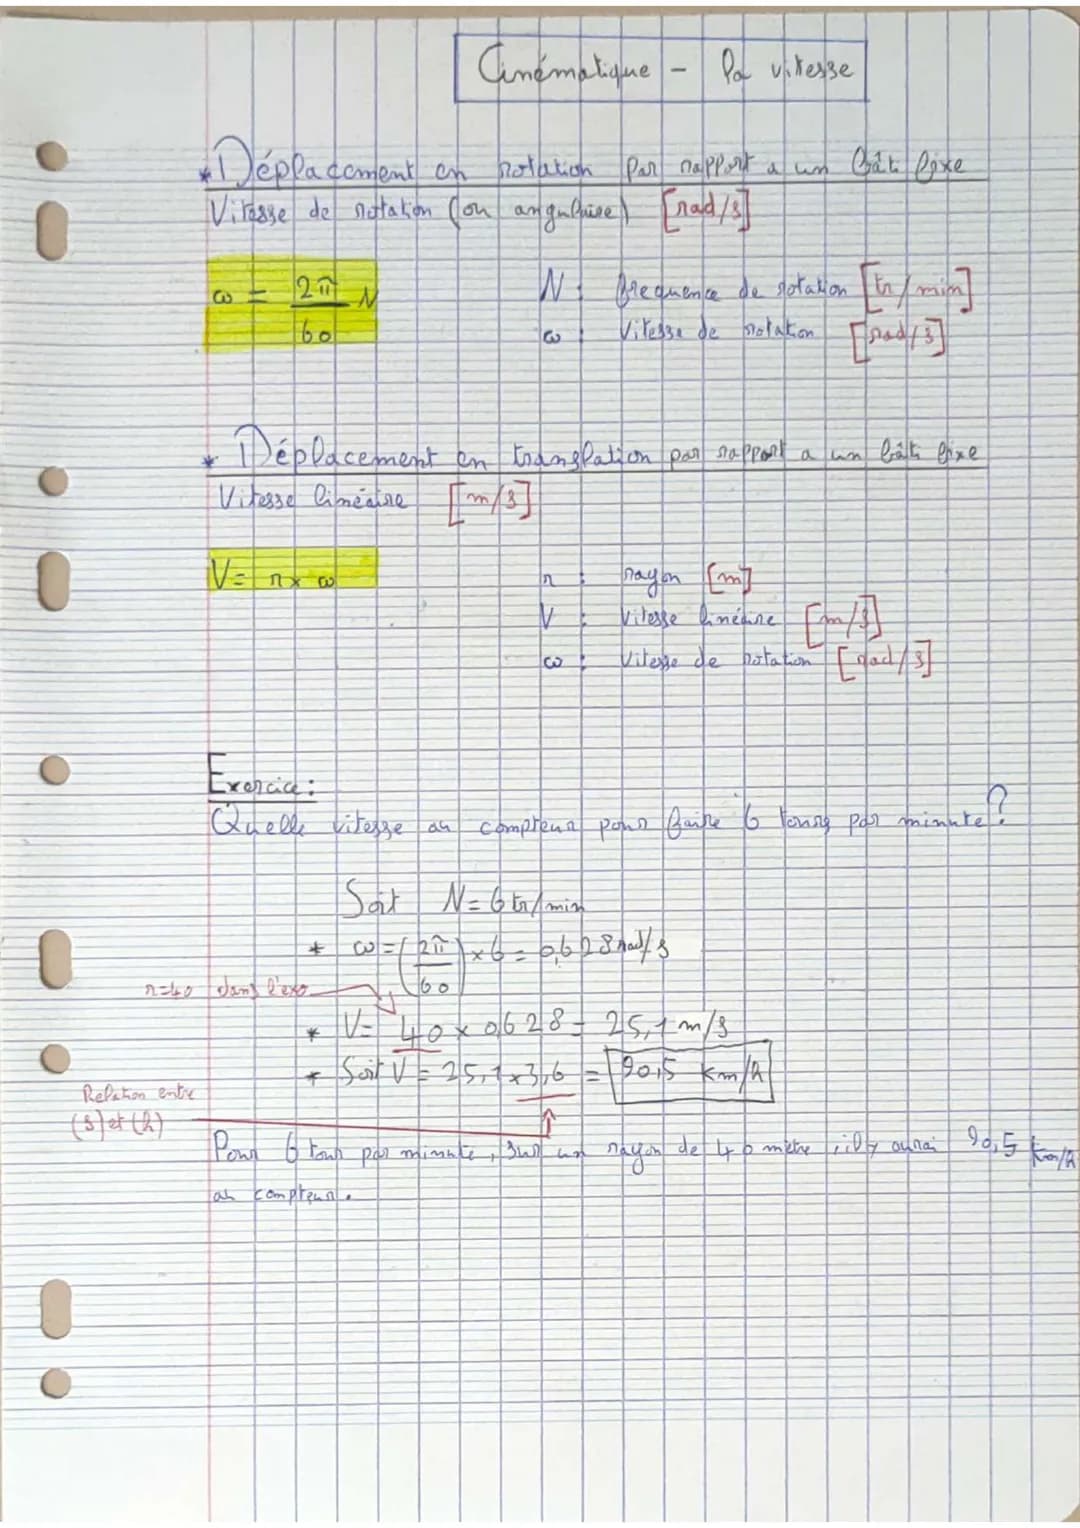 Cinématique - la vitesse
* Déplacement en rotation par rapport a un bâti fixe
Vitesse de rotation (ou angulaire) [rad/s]
ω = 2π/60 N
N : frequence de rotation [tr/min]
ω : Vitesse de rotation [rad/s]
* Déplacement en translation par rapport a un bâti fixe
Vitesse linéaire [m/s]
V = r x ω
r : rayon [m]
V : Vitesse linéaire [m/s]
ω : Vitesse de rotation [rad/s]
Exercice :
Quelle vitesse au compteur pour faire 6 tours par minute ?
Soit N = 6 tr/min
* ω = (2π/60) x 6 = 0,628 rad/s
r=40 dans l'exo
* V = 40 x 0,628 = 25,1 m/s
* Soit V = 25,1 x 3,6 = 90,5 km/h
Relation entre
(s) et (h)
Pour 6 tour par minute, sur un rayon de 40 mètre, il y aurai 90,5 km/h
au compteur.